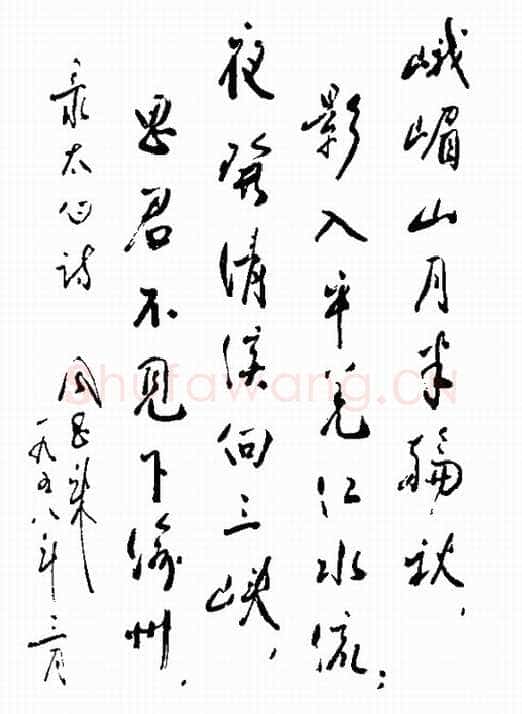 峨嵋山月半輪秋，
影入平羌江水流；
夜發清溪向三峡，
思君不見下渝州．
录太白诗 周恩來
一九五八年三月
Shufawang.CN